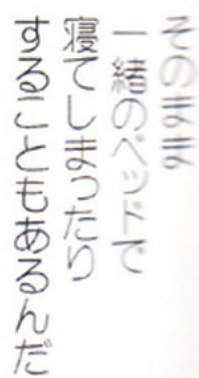 そのまま
一緒のベッドで
寝てしまったり
することもあるんだ